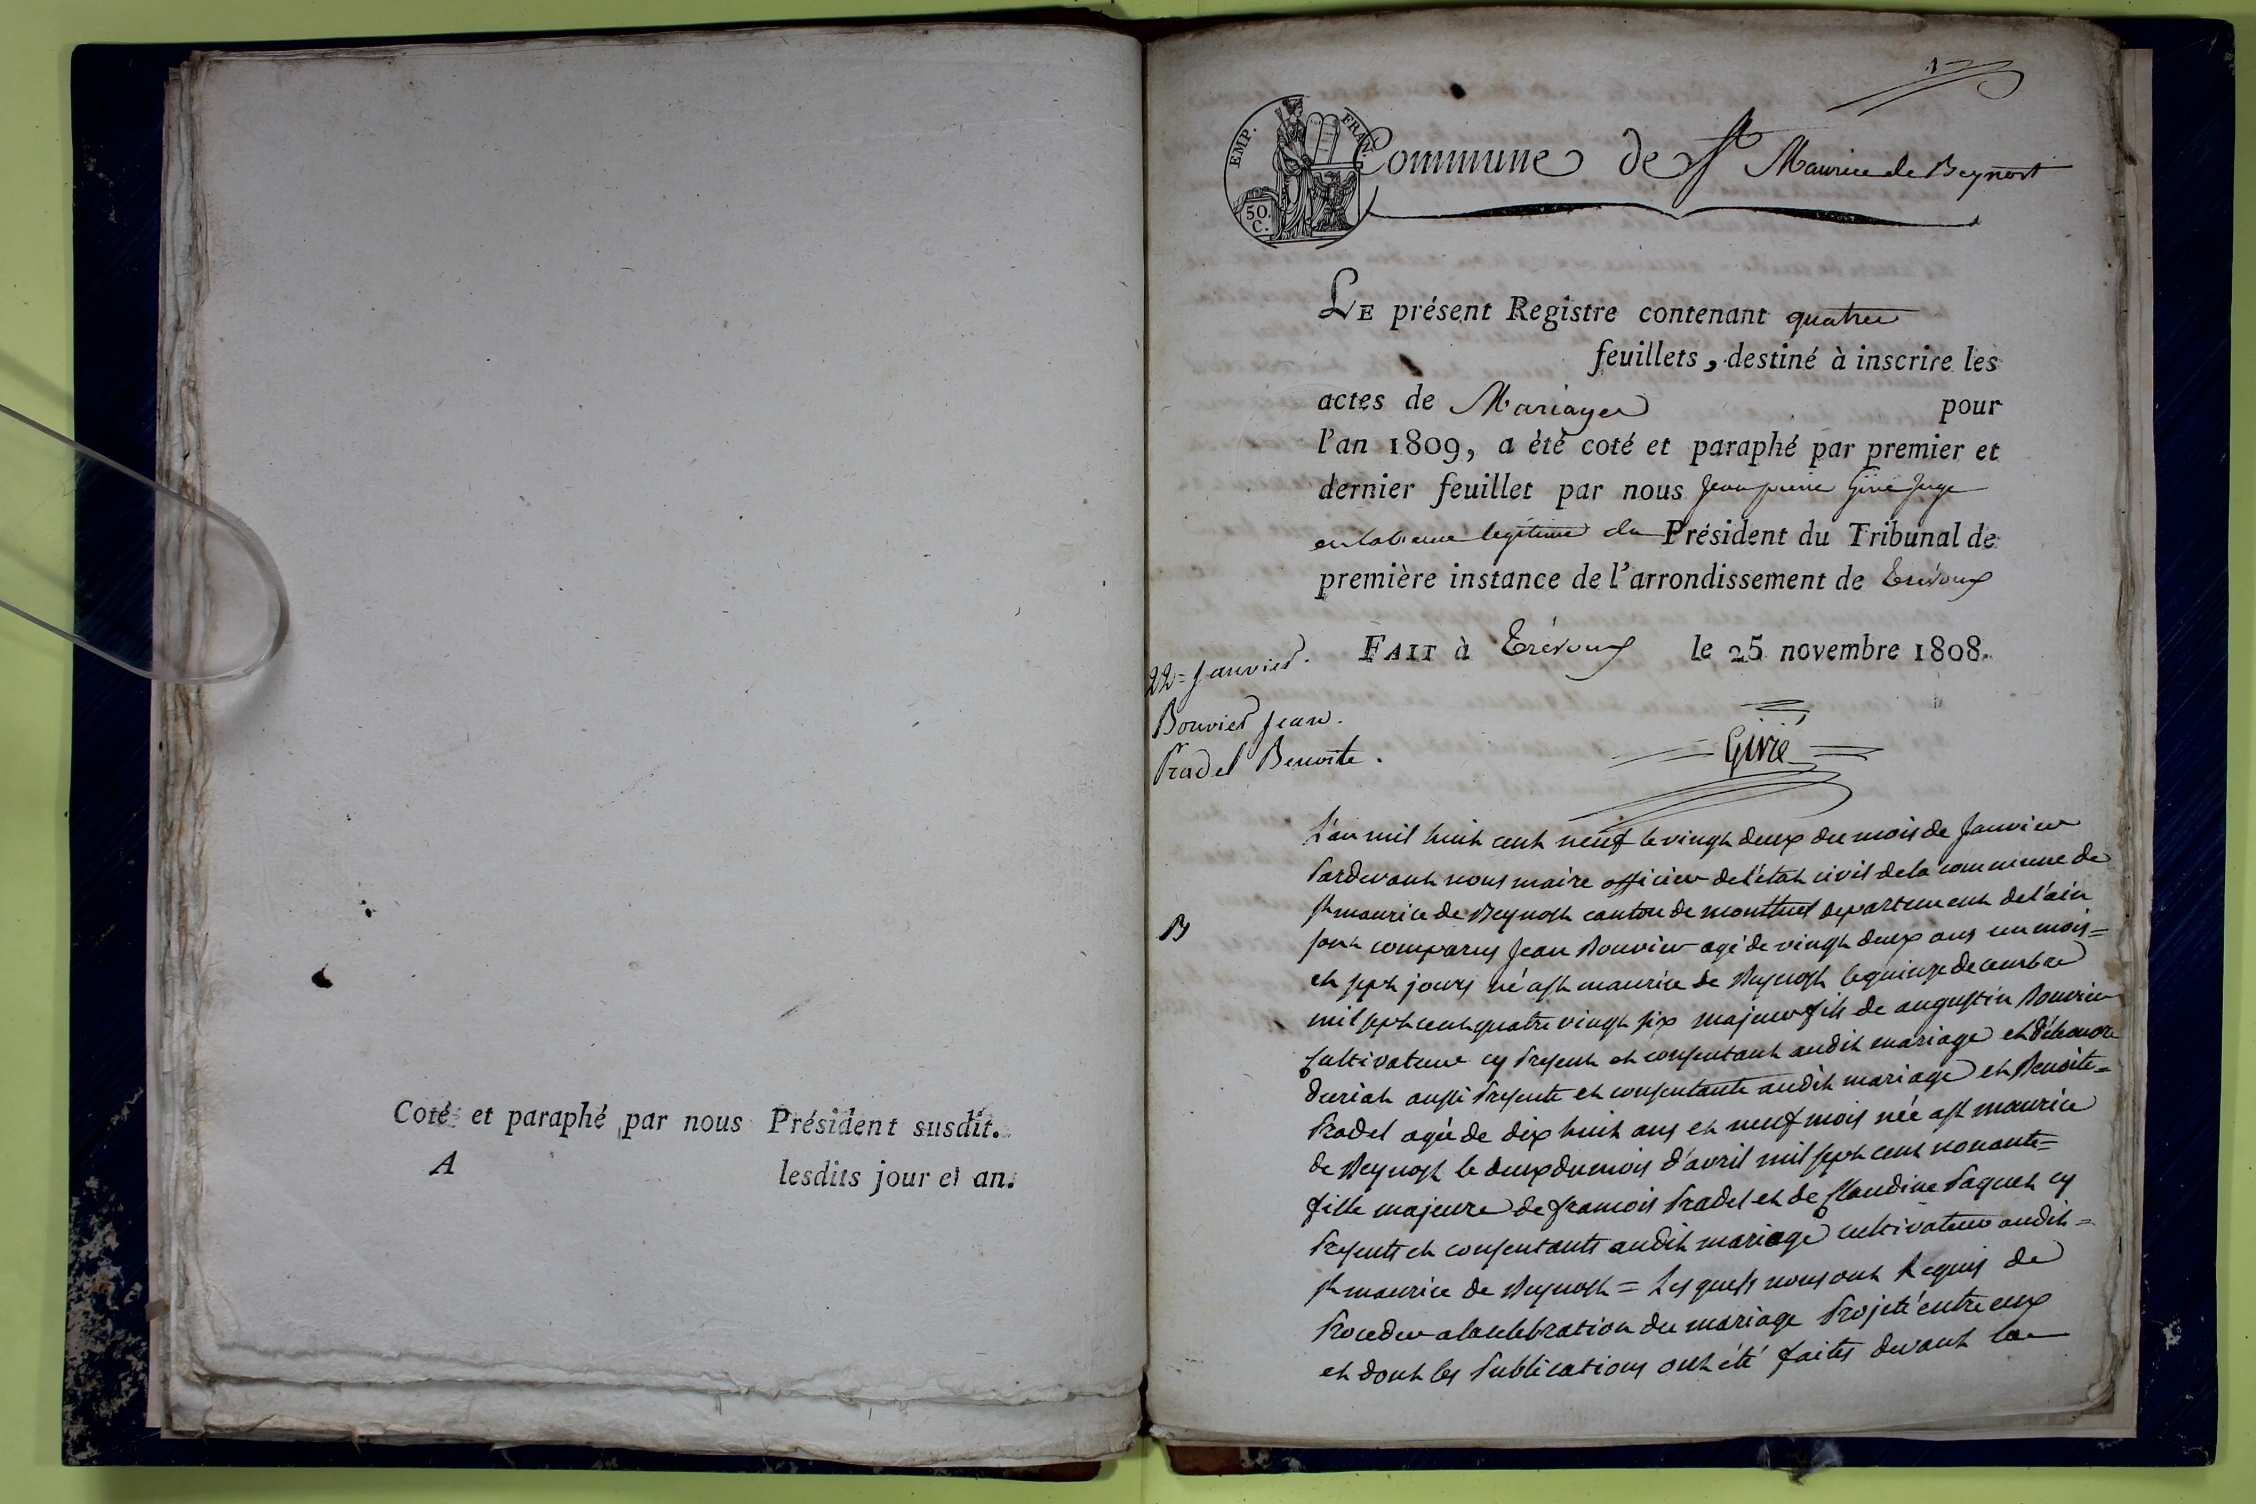 Coté et paraphé par nous Président susdit.
A lesdits jour et an.
1
EMP. FRAN.
50.
C.
Commune de St Maurice de Beynost
LE présent Registre contenant quatre
feuillets, destiné à inscrire les
actes de Mariages pour
l'an 1809, a été coté et paraphé par premier et
dernier feuillet par nous Jean pierre Givré Juge
en labsence legitime du Président du Tribunal de
première instance de l'arrondissement de Trévoux
FAIT à Trévoux le 25 novembre 1808.
Givré
22 = Janvier.
Bouvier Jean.
Pradel Benoite.
B
L'an mil huit cent neuf le vingt deux du mois de Janvier
Pardevant nous maire officier de l'état civil de la commune de
St maurice de Beynost canton de montluel departement de l'ain
sont comparus Jean Bouvier agé de vingt deux ans un mois =
et sept jours né a St maurice de Beynost le quinze decembre
mil sept cent quatre vingt six majeur fils de augustin Bouvier
Cultivateur cy Present et consentant audit mariage et
aussi Presente et consentante audit mariage et Benoite =
Pradel agée de dix huit ans et neuf mois née a St maurice
de Beynost le deux du mois d'avril mil sept cent nonante =
fille majeure de francois Pradel et de Claudine Paquet cy
Presents et consentants audit mariage cultivateurs audit =
St maurice de Beynost = Les quels nous ont Requis de
Proceder a la celebration du mariage Projeté entre eux
et dont les Publications ont été faites devant la